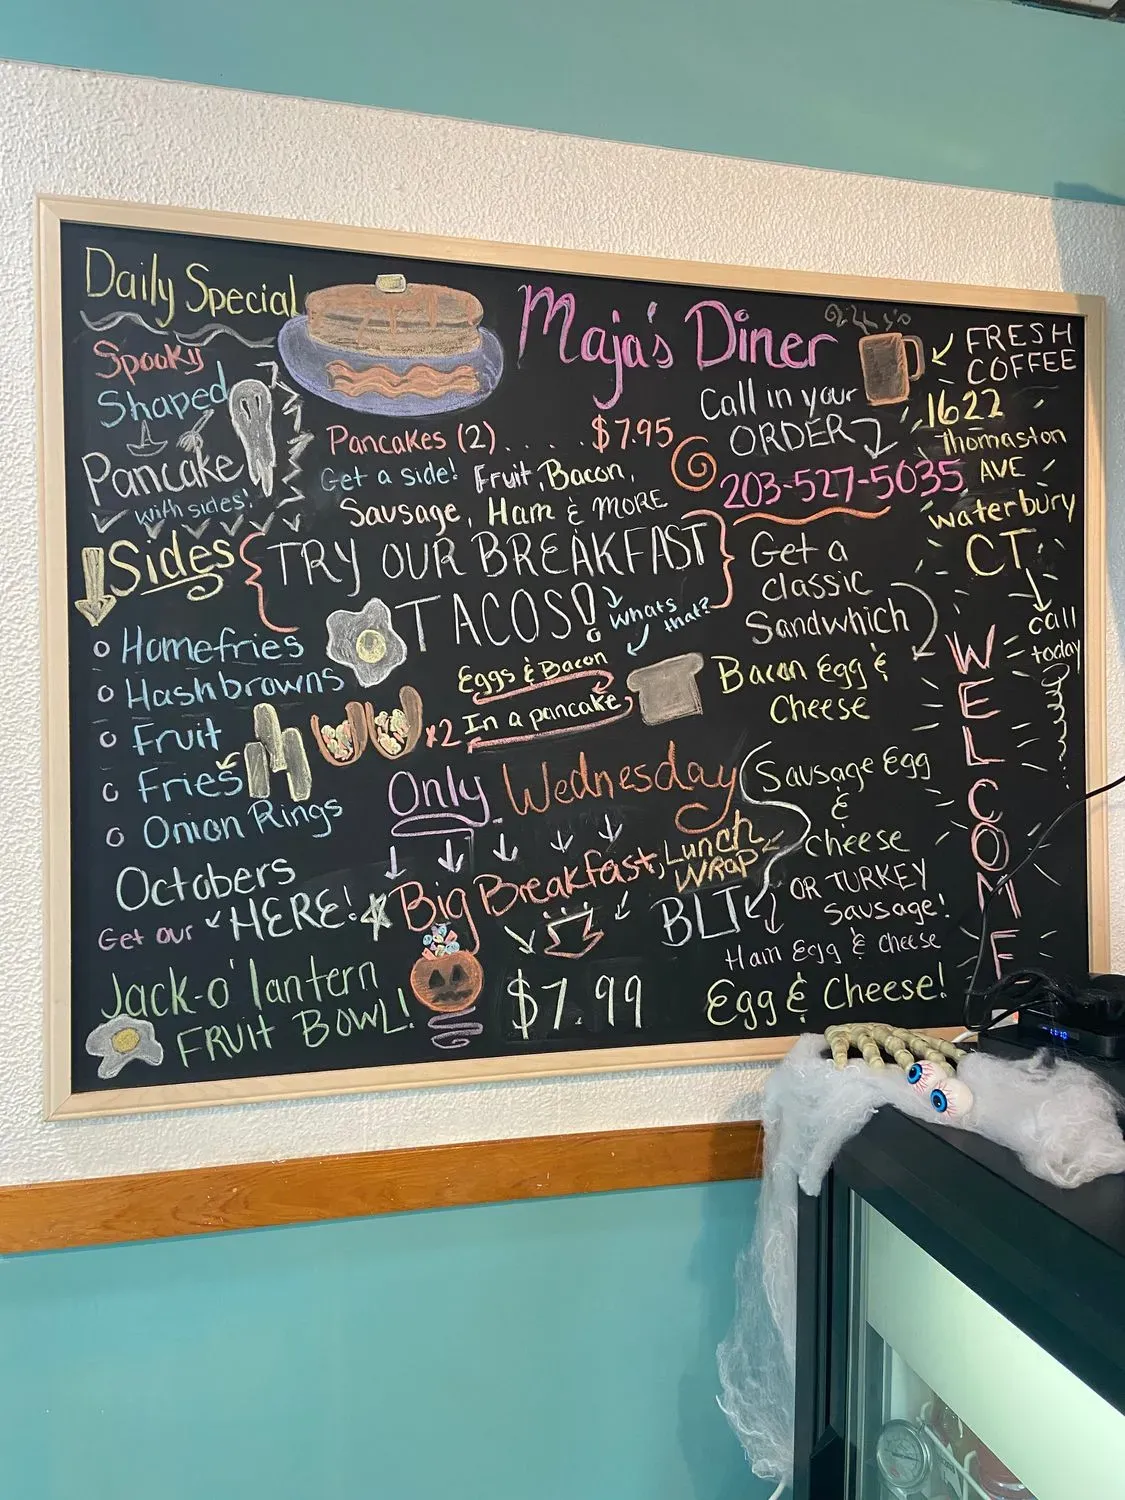 Daily Special
Spooky
Shaped
Pancake
with sides!
Sides
Homefries
Hashbrowns
Fruit
Fries
Onion Rings
Octobers
HERE!
Get our
Jack-o'lantern
FRUIT BOWL!
Maja's Diner
Pancakes (2) . . . . . . $7.95
Get a side! Fruit, Bacon,
Sausage, Ham & MORE
TRY OUR BREAKFAST
TACOS!
Whats
that?
Eggs & Bacon
In a pancake
x2
Only Wednesday
Big Breakfast, Lunch
WRAP
BLT
$7.99
Call in your
ORDER
203-527-5035
Get a
classic
Sandwhich
Bacon Egg &
Cheese
Sausage Egg
&
Cheese
OR TURKEY
Sausage!
Ham Egg & Cheese
Egg & Cheese!
FRESH
COFFEE
1622
Thomaston
AVE
Waterbury
CT
call
today
WELCOME